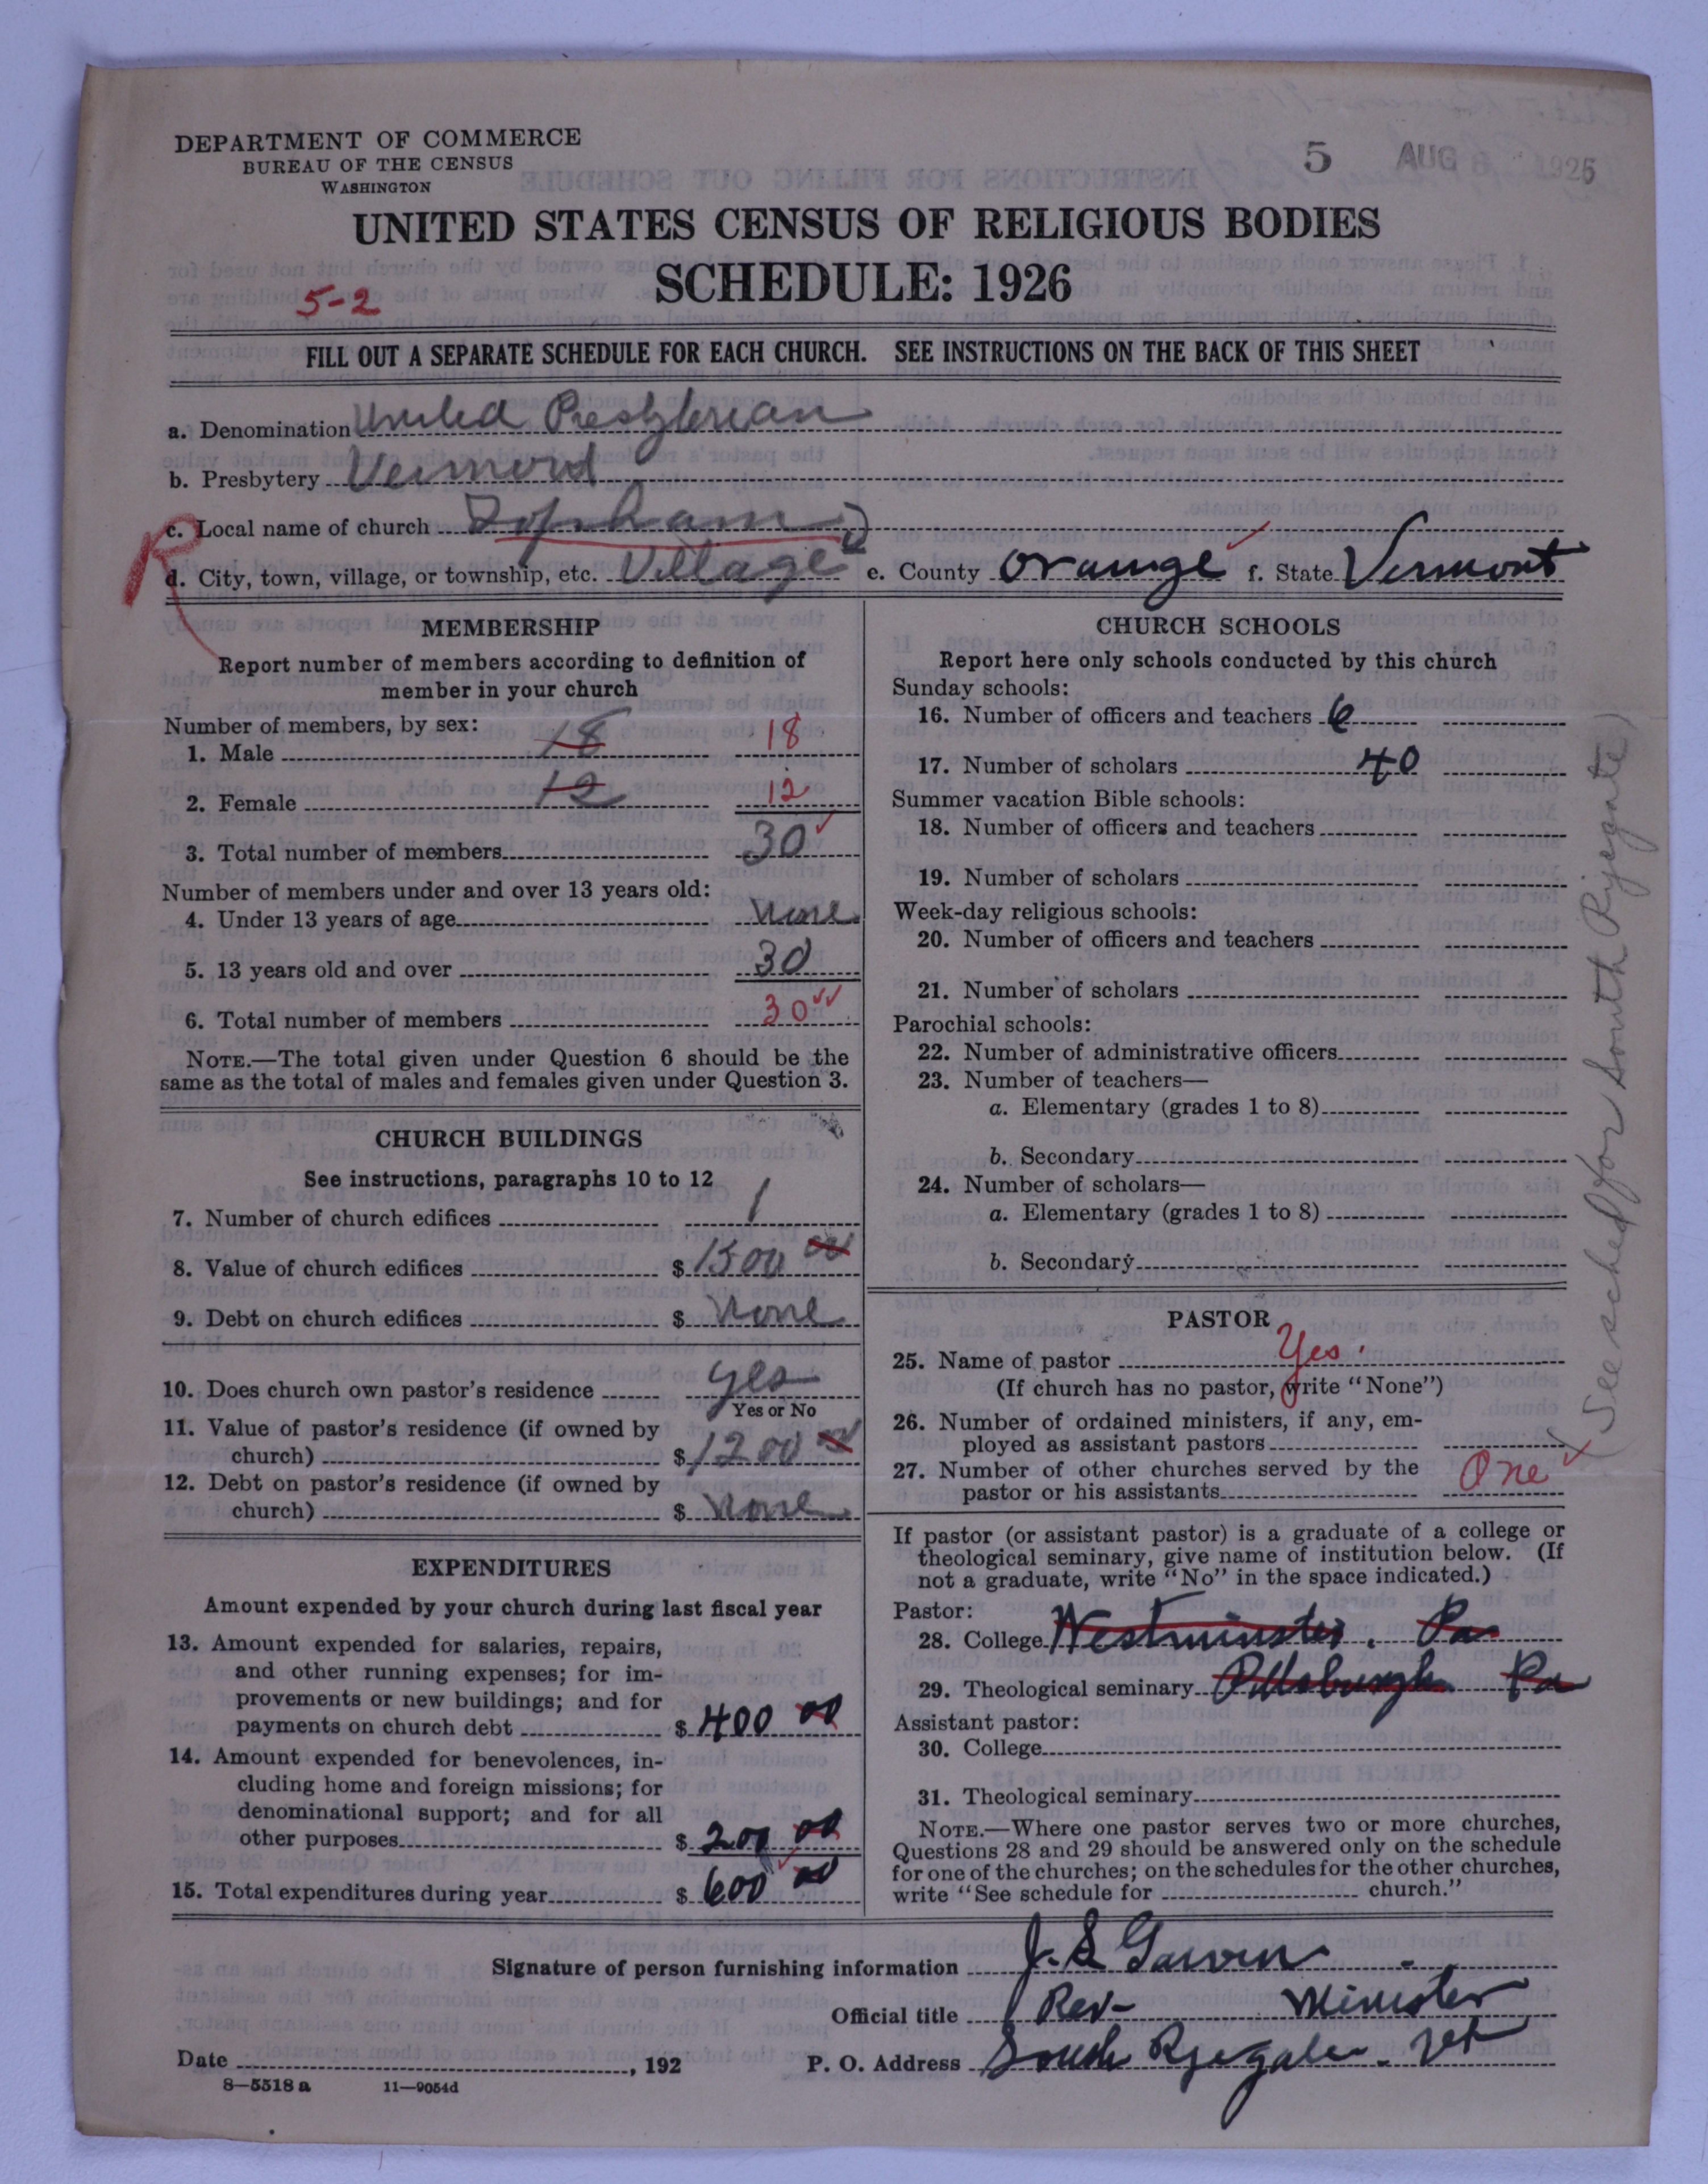 DEPARTMENT OF COMMERCE
BUREAU OF THE CENSUS
WASHINGTON
5 AUG 1926
UNITED STATES CENSUS OF RELIGIOUS BODIES
SCHEDULE: 1926
5-2
FILL OUT A SEPARATE SCHEDULE FOR EACH CHURCH. SEE INSTRUCTIONS ON THE BACK OF THIS SHEET
a. Denomination United Presbyterian
b. Presbytery Vermont
c. Local name of church Topham
R
d. City, town, village, or township, etc. Village e. County Orange f. State Vermont
MEMBERSHIP
Report number of members according to definition of
member in your church
Number of members, by sex:
1. Male 18 18
2. Female 12 12
3. Total number of members 30
Number of members under and over 13 years old:
4. Under 13 years of age None
5. 13 years old and over 30
6. Total number of members 30
NOTE.—The total given under Question 6 should be the
same as the total of males and females given under Question 3.
CHURCH BUILDINGS
See instructions, paragraphs 10 to 12
7. Number of church edifices 1
8. Value of church edifices $ 1500 00
9. Debt on church edifices $ None
10. Does church own pastor's residence yes
Yes or No
11. Value of pastor's residence (if owned by
church) $ 1200 00
12. Debt on pastor's residence (if owned by
church) $ None
EXPENDITURES
Amount expended by your church during last fiscal year
13. Amount expended for salaries, repairs,
and other running expenses; for im-
provements or new buildings; and for
payments on church debt $ 400 00
14. Amount expended for benevolences, in-
cluding home and foreign missions; for
denominational support; and for all
other purposes $ 200 00
15. Total expenditures during year $ 600 00
CHURCH SCHOOLS
Report here only schools conducted by this church
Sunday schools:
16. Number of officers and teachers 6
17. Number of scholars 40
Summer vacation Bible schools:
18. Number of officers and teachers
19. Number of scholars
Week-day religious schools:
20. Number of officers and teachers
21. Number of scholars
Parochial schools:
22. Number of administrative officers
23. Number of teachers—
a. Elementary (grades 1 to 8)
b. Secondary
24. Number of scholars—
a. Elementary (grades 1 to 8)
b. Secondary
PASTOR
25. Name of pastor Yes.
(If church has no pastor, write "None")
26. Number of ordained ministers, if any, em-
ployed as assistant pastors
27. Number of other churches served by the
pastor or his assistants One
If pastor (or assistant pastor) is a graduate of a college or
theological seminary, give name of institution below. (If
not a graduate, write "No" in the space indicated.)
Pastor:
28. College Westminster. Pa
29. Theological seminary Pittsburgh Pa
Assistant pastor:
30. College
31. Theological seminary
NOTE.—Where one pastor serves two or more churches,
Questions 28 and 29 should be answered only on the schedule
for one of the churches; on the schedules for the other churches,
write "See schedule for church."
(See sched for South Ryegate)
Signature of person furnishing information J. S. Garvin
Official title Rev- Minister
Date , 192 P. O. Address South Ryegate. Vt
8—5518 a 11—9054d